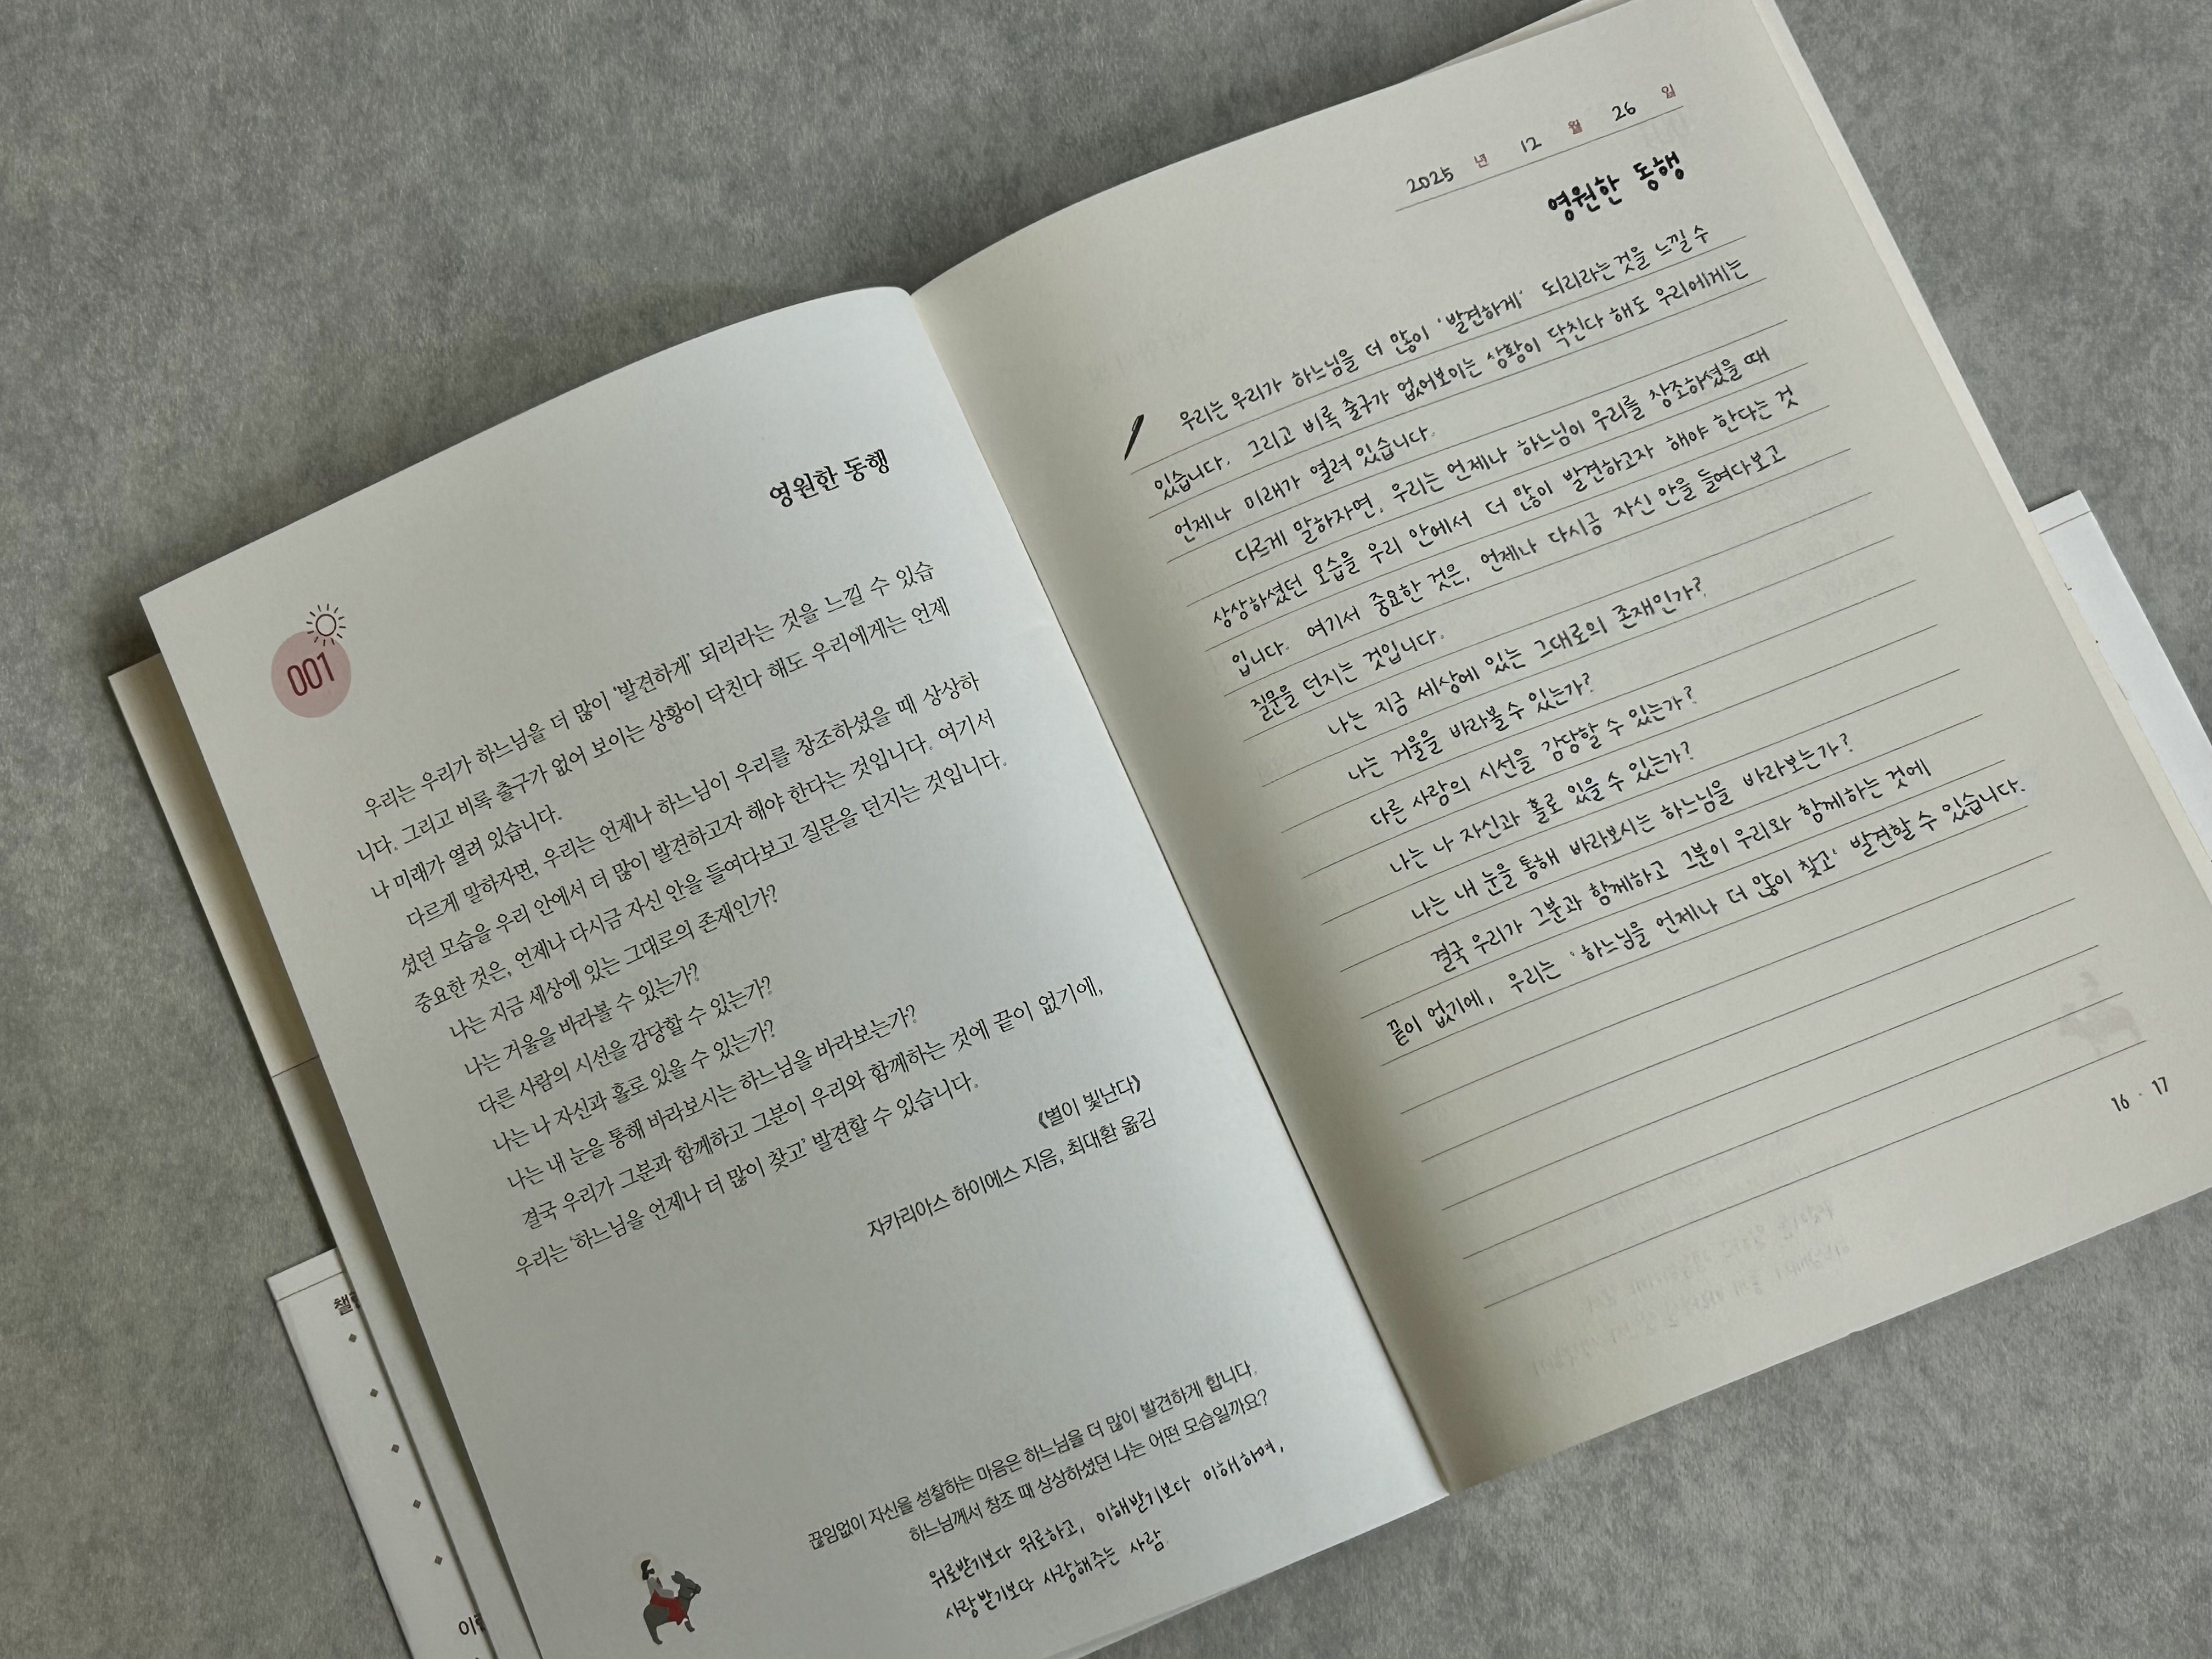 001
영원한 동행
우리는 우리가 하느님을 더 많이 ‘발견하게’ 되리라는 것을 느낄 수 있습
니다. 그리고 비록 출구가 없어 보이는 상황이 닥친다 해도 우리에게는 언제
나 미래가 열려 있습니다.
다르게 말하자면, 우리는 언제나 하느님이 우리를 창조하셨을 때 상상하
셨던 모습을 우리 안에서 더 많이 발견하고자 해야 한다는 것입니다. 여기서
중요한 것은, 언제나 다시금 자신 안을 들여다보고 질문을 던지는 것입니다.
나는 지금 세상에 있는 그대로의 존재인가?
나는 거울을 바라볼 수 있는가?
다른 사람의 시선을 감당할 수 있는가?
나는 나 자신과 홀로 있을 수 있는가?
나는 내 눈을 통해 바라보시는 하느님을 바라보는가?
결국 우리가 그분과 함께하고 그분이 우리와 함께하는 것에 끝이 없기에,
우리는 ‘하느님을 언제나 더 많이 찾고’ 발견할 수 있습니다.
《별이 빛난다》
자카리아스 하이에스 지음, 최대환 옮김
끊임없이 자신을 성찰하는 마음은 하느님을 더 많이 발견하게 합니다.
하느님께서 창조 때 상상하셨던 나는 어떤 모습일까요?
위로받기보다 위로하고, 이해받기보다 이해하며,
사랑받기보다 사랑해주는 사람.
2025 년 12 월 26 일
영원한 동행
우리는 우리가 하느님을 더 많이 '발견하게' 되리라는 것을 느낄 수
있습니다. 그리고 비록 출구가 없어보이는 상황이 닥친다 해도 우리에게는
언제나 미래가 열려 있습니다.
다르게 말하자면, 우리는 언제나 하느님이 우리를 상조하셨을 때
상상하셨던 모습을 우리 안에서 더 많이 발견하고자 해야 한다는 것
입니다. 여기서 중요한 것은, 언제나 다시금 자신 안을 들여다보고
질문을 던지는 것입니다.
나는 지금 세상에 있는 그대로의 존재인가?
나는 거울을 바라볼 수 있는가?
다른 사람의 시선을 감당할 수 있는가?
나는 나 자신과 홀로 있을 수 있는가?
나는 내 눈을 통해 바라보시는 하느님을 바라보는가?
결국 우리가 그분과 함께하고 그분이 우리와 함께하는 것에
끝이 없기에, 우리는 '하느님을 언제나 더 많이 찾고' 발견할 수 있습니다.
16 · 17